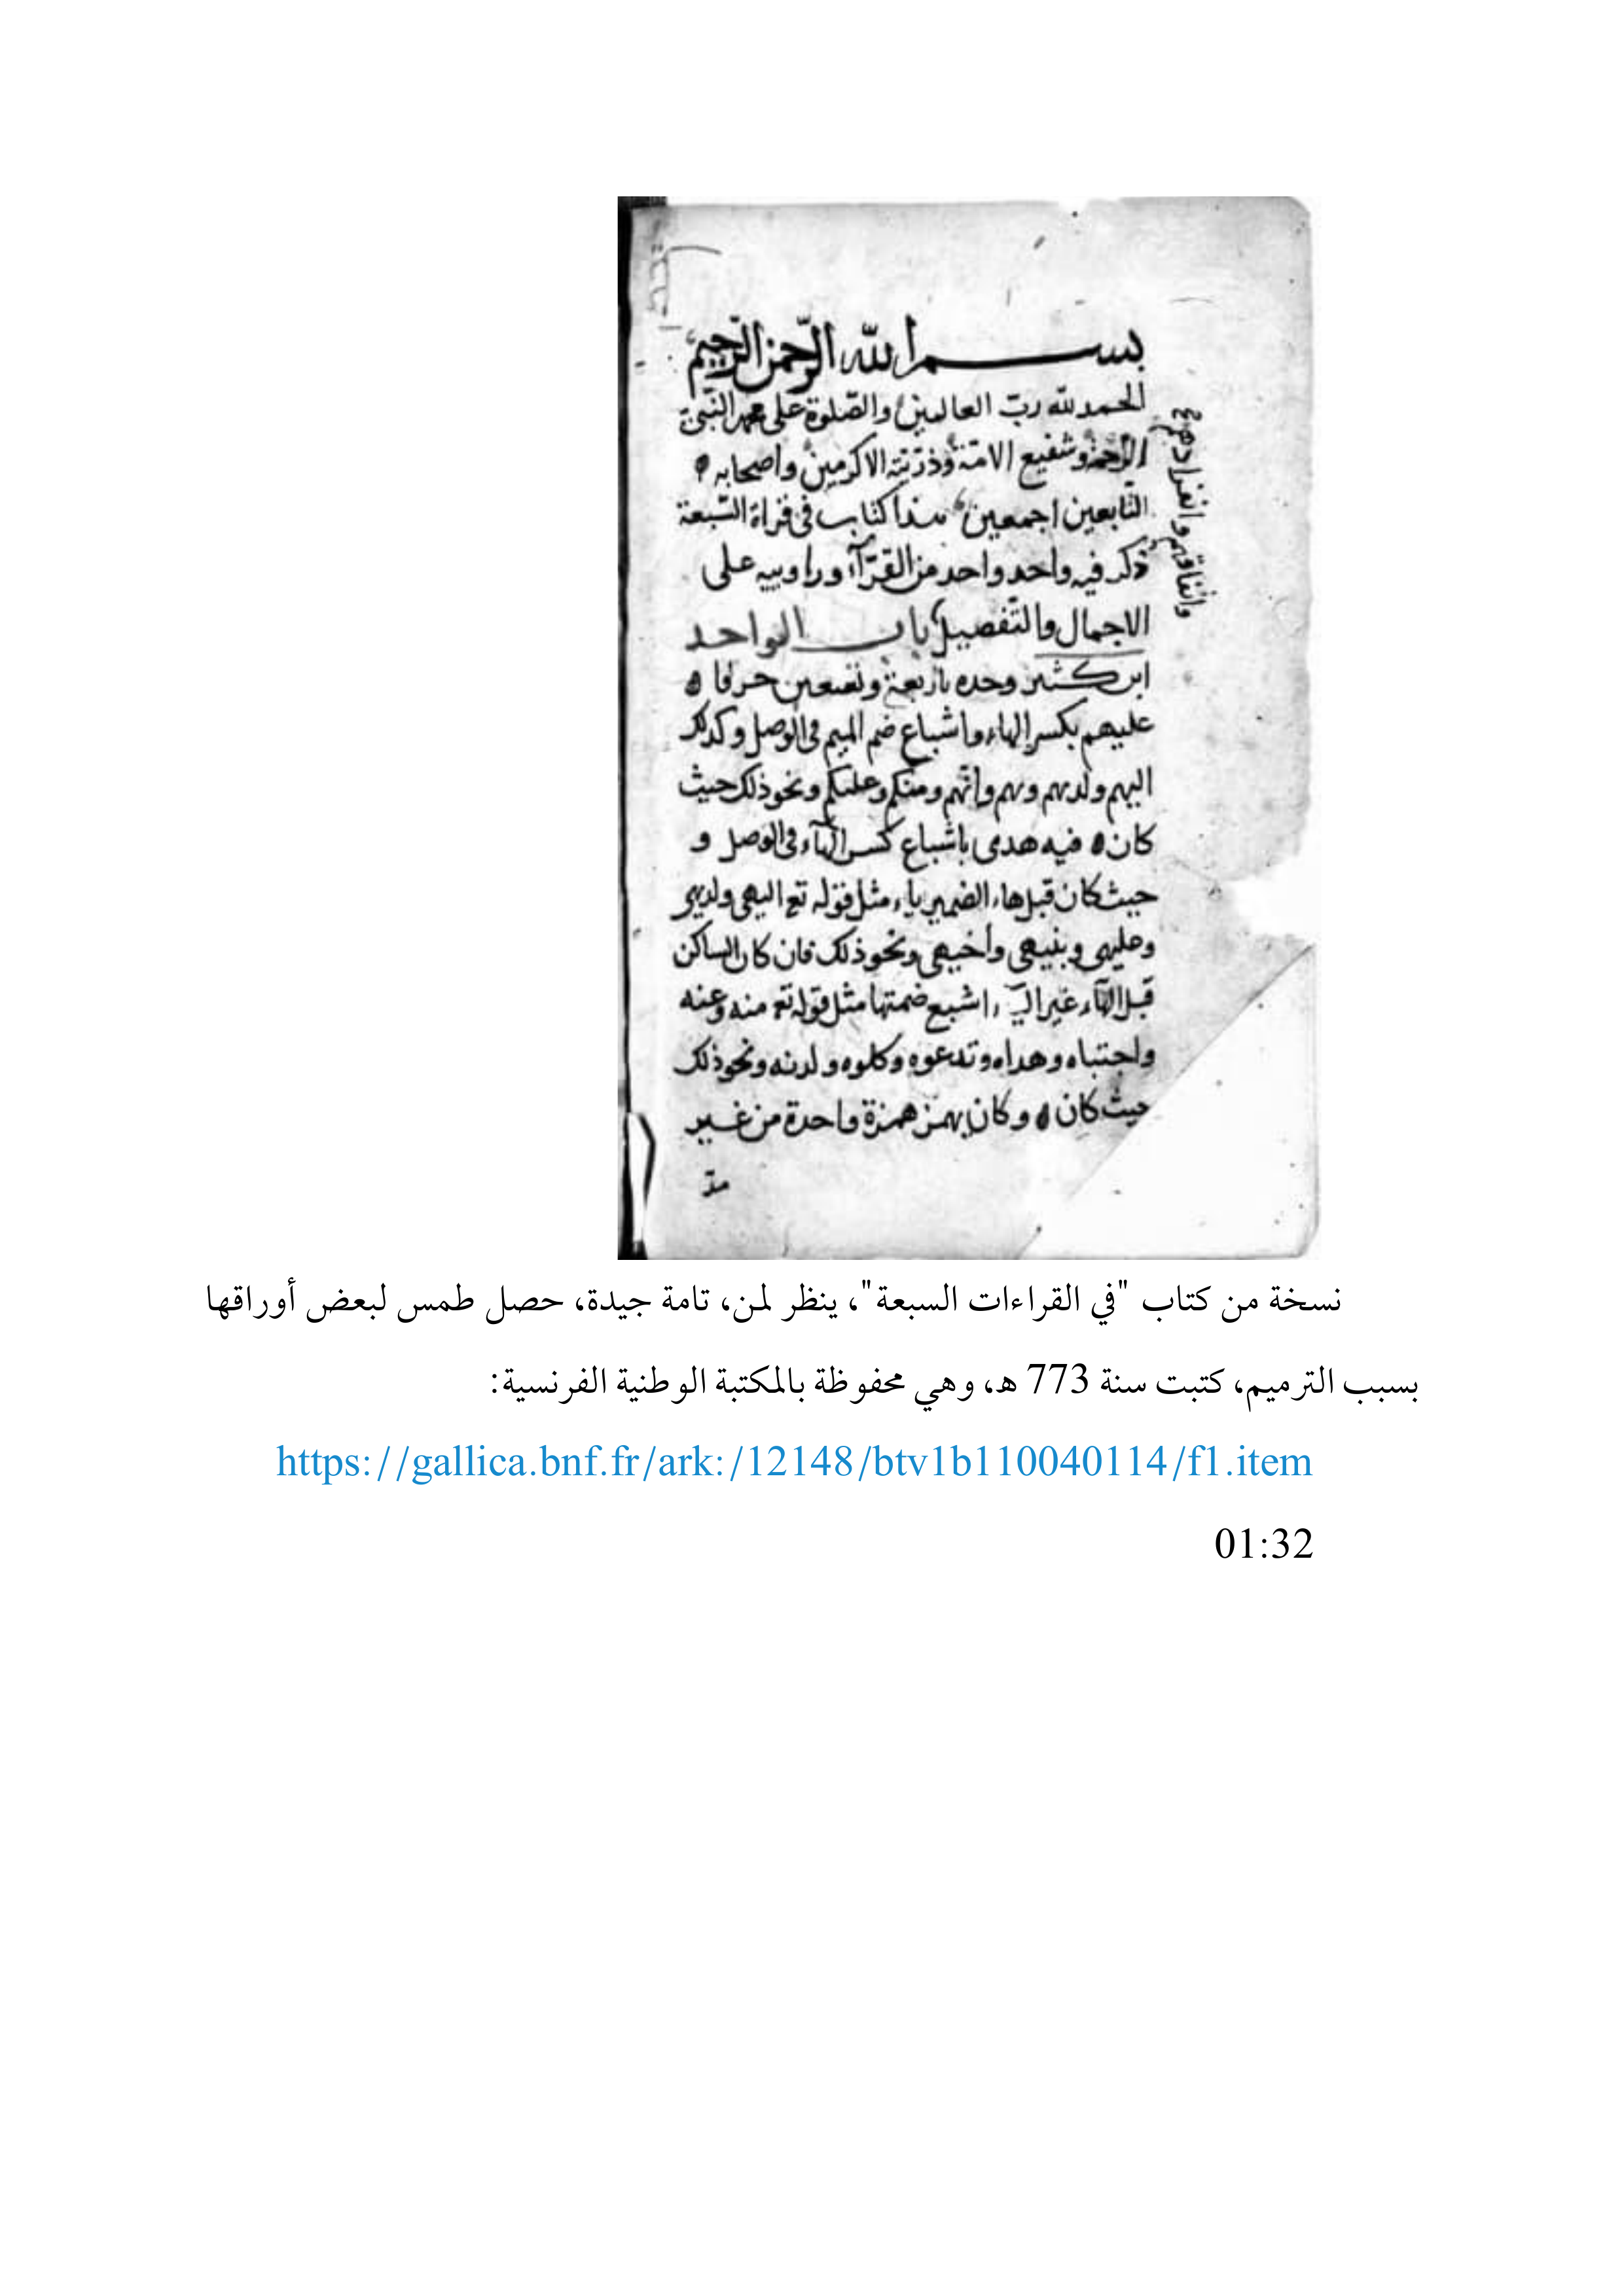 بسم الله الرّحمن الرّحيم
الحمد لله ربّ العالمين والصّلوة على محمد النّبيّ
الرّحمة وشفيع الامّة وذرّيّته الاكرمين واصحابه
التّابعين اجمعين هذا كتاب فى قراة السّبعة
ذكر فيه واحد واحد من القرّآء وراوييه على
الاجمال والتّفصيل باب الواحد
ابن كثير وحده باربعة وتسعين حرفا
عليهم بكسر الهاء واشباع ضم الميم فى الوصل وكذلك
اليهم ولديهم وبهم وانّهم ومنكم وعليكم ونحو ذلك حيث
كان فيه هدى باشباع كسر الهآء فى الوصل و
حيث كان قبل هاء الضمير ياء مثل قوله تع اليهى ولديهى
وعليهى وبنيهى واخيهى ونحو ذلك فان كان الساكن
قبل الهآء غير اليآء اشبع ضمتها مثل قوله تع منه وعنه
واجتباه وهداه وتدعوه وكلوه ولدنه ونحو ذلك
حيث كان وكان يهمز همزة واحدة من غير
مدّ
وانفرادهم
واتفاقهم
نسخة من كتاب "في القراءات السبعة"، ينظر لمن، تامة جيدة، حصل طمس لبعض أوراقها
بسبب الترميم، كتبت سنة 773 هـ، وهي محفوظة بالمكتبة الوطنية الفرنسية:
https://gallica.bnf.fr/ark:/12148/btv1b110040114/f1.item
01:32